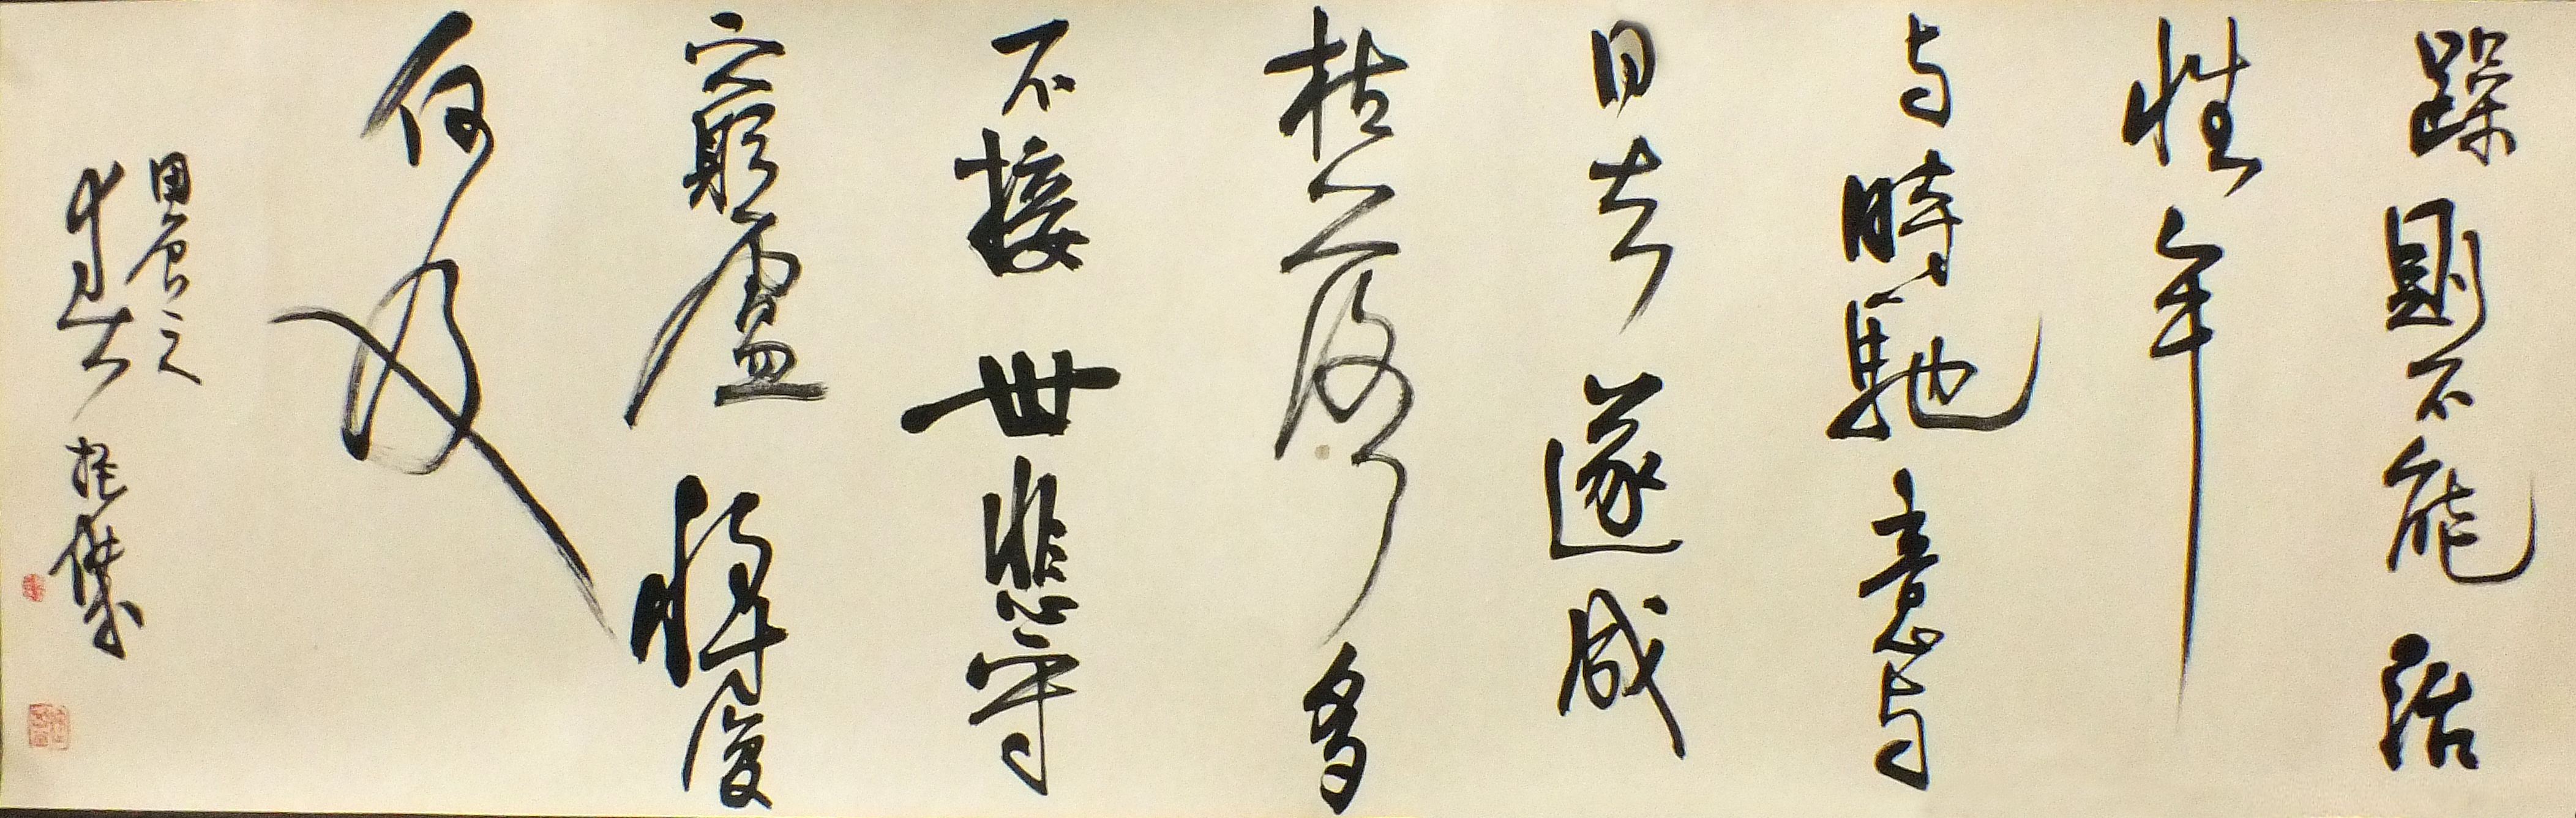 躁則不能治
性年
与時馳意与
日去遂成
枯落多
不接世悲守
窮廬將復
何及